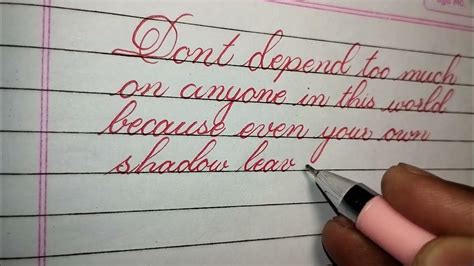 Dont depend too much
on anyone in this world
because even your own
shadow leav